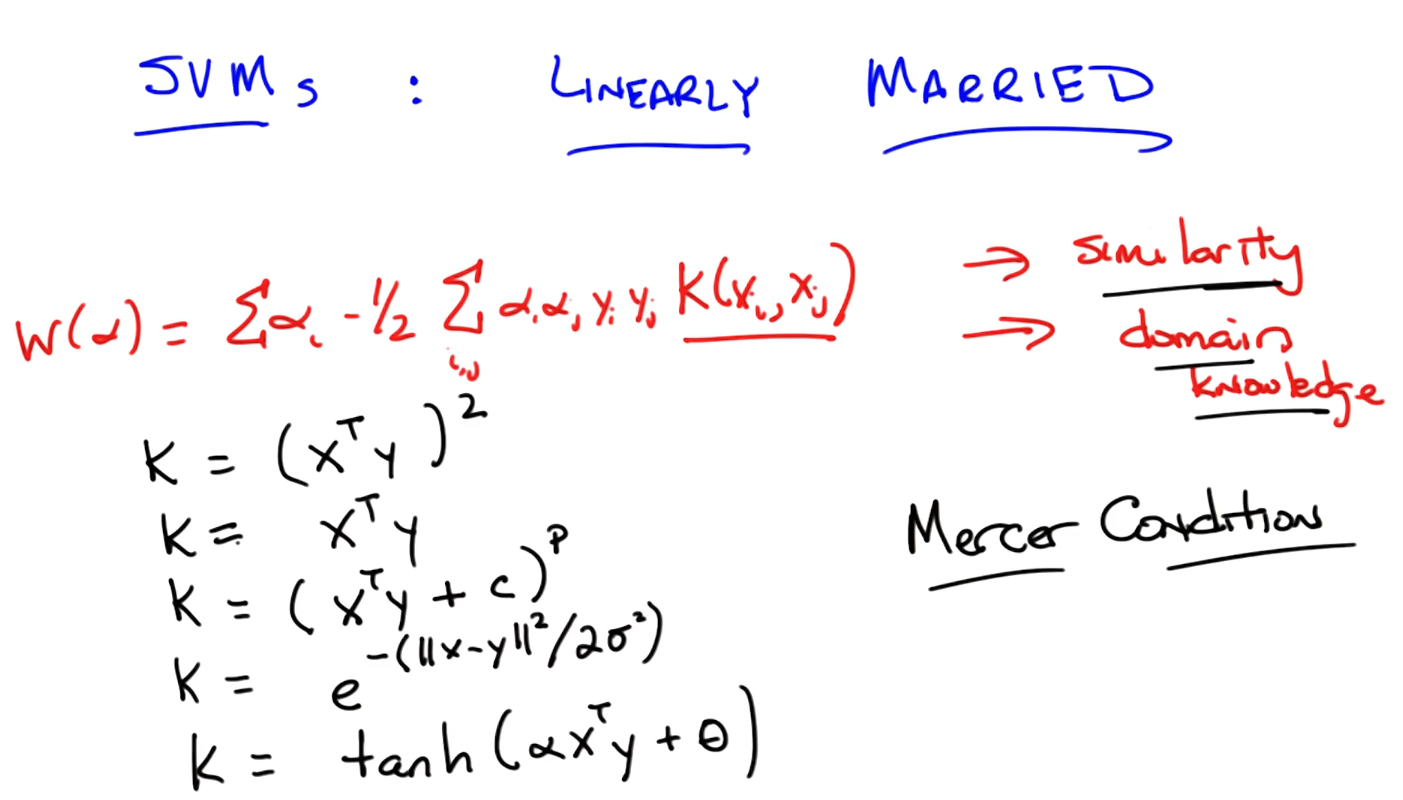 SVMs : LINEARLY MARRIED
W(α) = Σαᵢ - 1/2 Σᵢ,ⱼ αᵢαⱼ yᵢ yⱼ K(xᵢ, xⱼ)
→ similarity
→ domain
knowledge
K = (xᵀy)²
K = xᵀy
K = (xᵀy + c)ᴾ
K = e^-(||x-y||²/2σ²)
K = tanh(αxᵀy + θ)
Mercer Condition